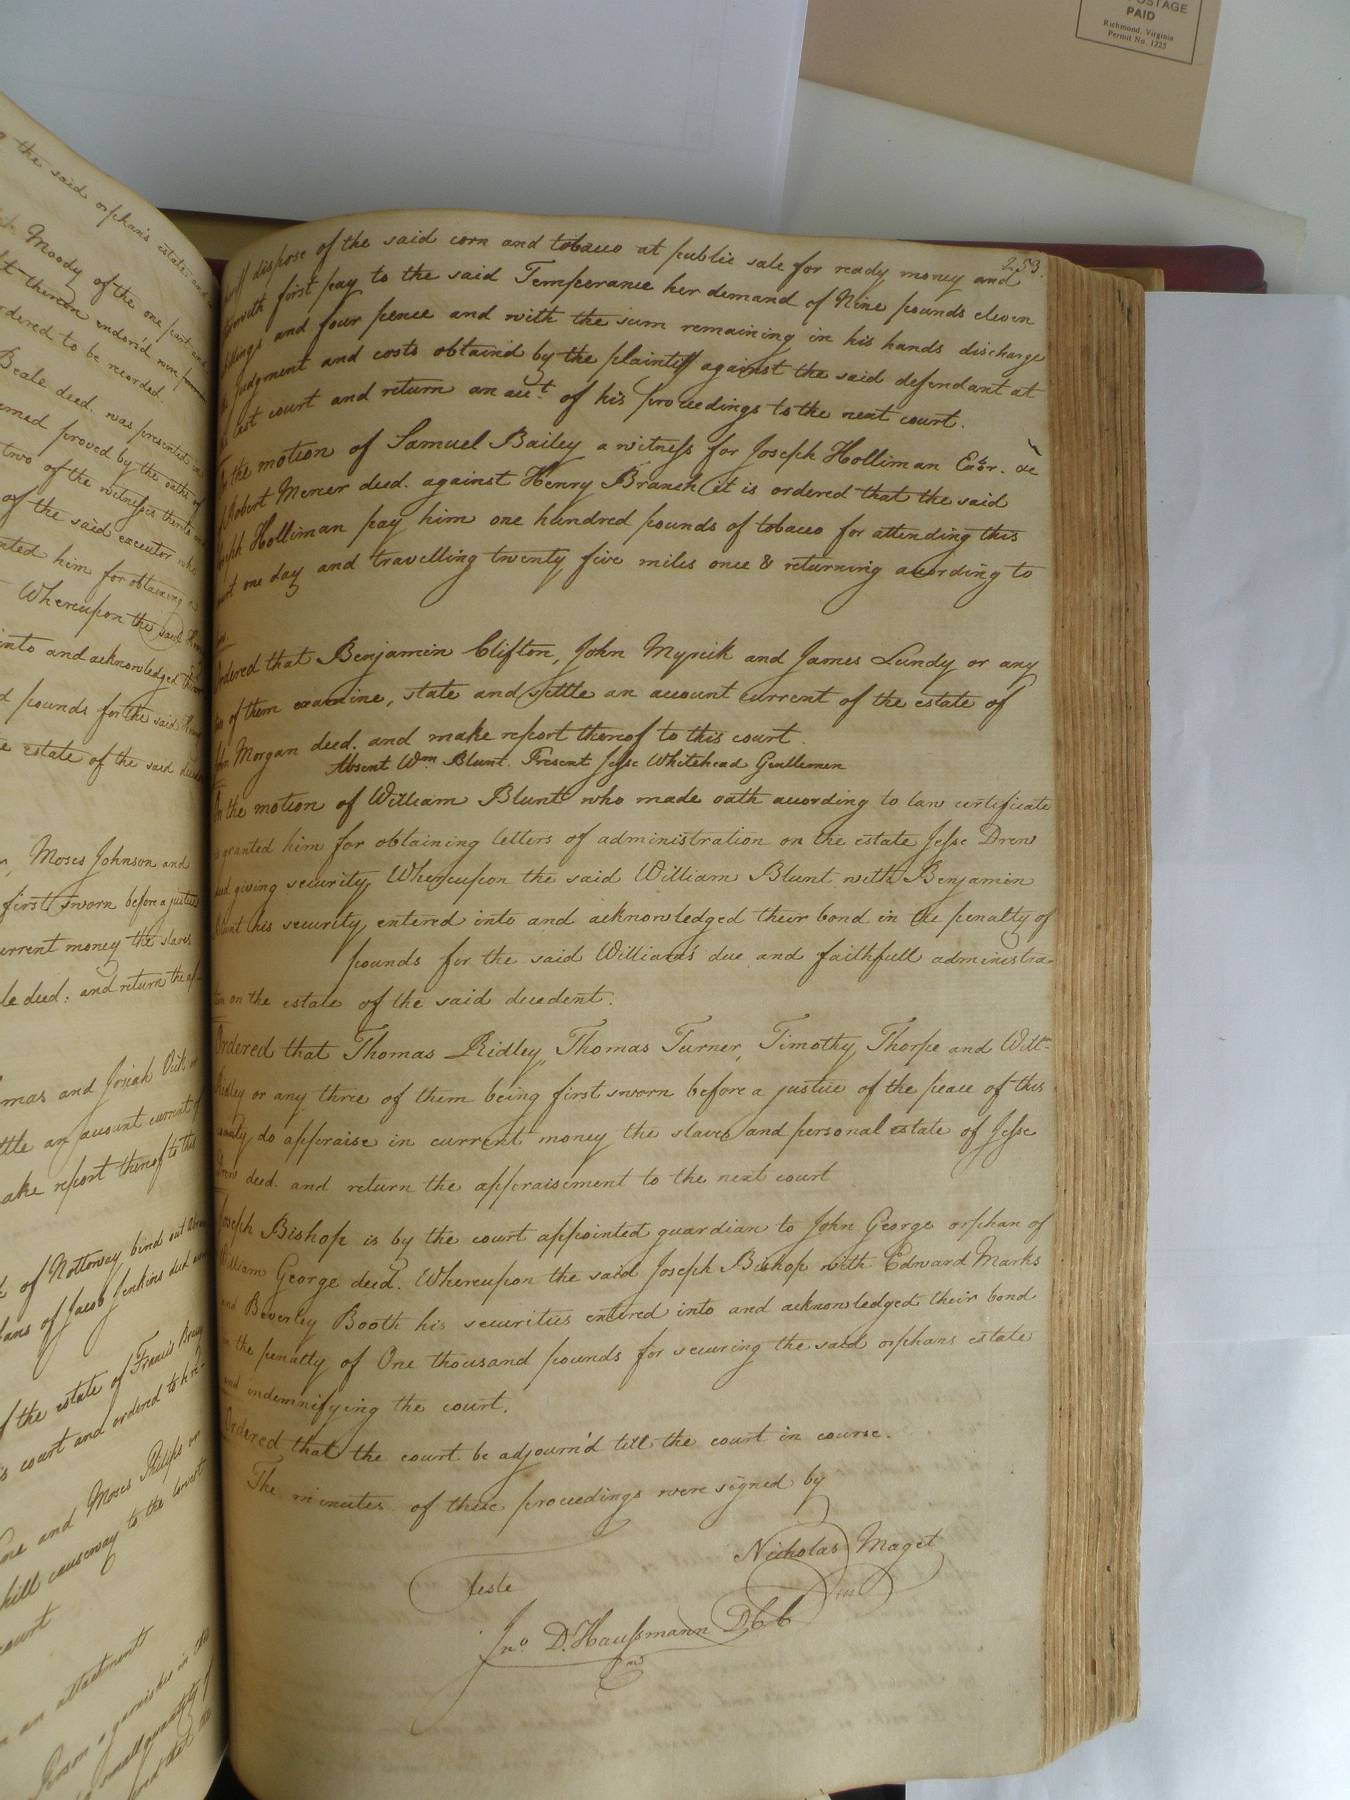 POSTAGE
PAID
Richmond, Virginia
Permit No. 1225
the said orphan's estate and
Moody of the one part and
thereon endors'd were
ordered to be recorded.
Beale deed. was presented in
proved by the oaths of
two of the witnesses thereto
of the said executor who
him for obtaining
Whereupon the said
into and acknowledged their
pounds for the said
estate of the said decedent
Moses Johnson and
first sworn before a justice
current money the slaves
deed: and return the
and Josiah
an account current of
make report thereof to this
of Nottoway binds out
of Jacob Jenkins deed
of the estate of Francis
court and ordered to be
and Moses Philips or
causeway to the lowest
court
an attachment
garnishee in
small quantity of
253.
dispose of the said corn and tobacco at public sale for ready money and
first pay to the said Temperance her demand of Nine pounds eleven
shillings and four pence and with the sum remaining in his hands discharge
the judgment and costs obtain'd by the plaintiff against the said defendant at
last court and return an acct. of his proceedings to the next court.
On the motion of Samuel Bailey a witness for Joseph Holliman Exor. &c
of Robert Mercer deed. against Henry Branch it is ordered that the said
Joseph Holliman pay him one hundred pounds of tobacco for attending this
court one day and travelling twenty five miles once & returning according to
law.
Ordered that Benjamin Clifton, John Myrick and James Lundy or any
two of them examine, state and settle an account current of the estate of
John Morgan deed. and make report thereof to this court.
Absent Wm Blunt. Present Jesse Whitehead Gentlemen
On the motion of William Blunt who made oath according to law certificate
is granted him for obtaining letters of administration on the estate Jesse Drew
deed giving security, Whereupon the said William Blunt with Benjamin
Blunt his security, entered into and acknowledged their bond in the penalty of
pounds for the said William's due and faithfull administra-
tion on the estate of the said decedent.
Ordered that Thomas Ridley, Thomas Turner, Timothy Thorpe and Willm
Ridley or any three of them being first sworn before a justice of the peace of this
county, do appraise in current money the slaves and personal estate of Jesse
Drew deed. and return the appraisement to the next court
Joseph Bishop is by the court appointed guardian to John George orphan of
William George deed. Whereupon the said Joseph Bishop with Edward Marks
and Beverley Booth his securities entered into and acknowledged their bond
in the penalty of One thousand pounds for securing the said orphans estate
and indemnifying the court.
Ordered that the court be adjourn'd till the court in course.
The minutes of these proceedings were signed by
Nicholas Maget
Teste
Jno D. Haussmann DCC